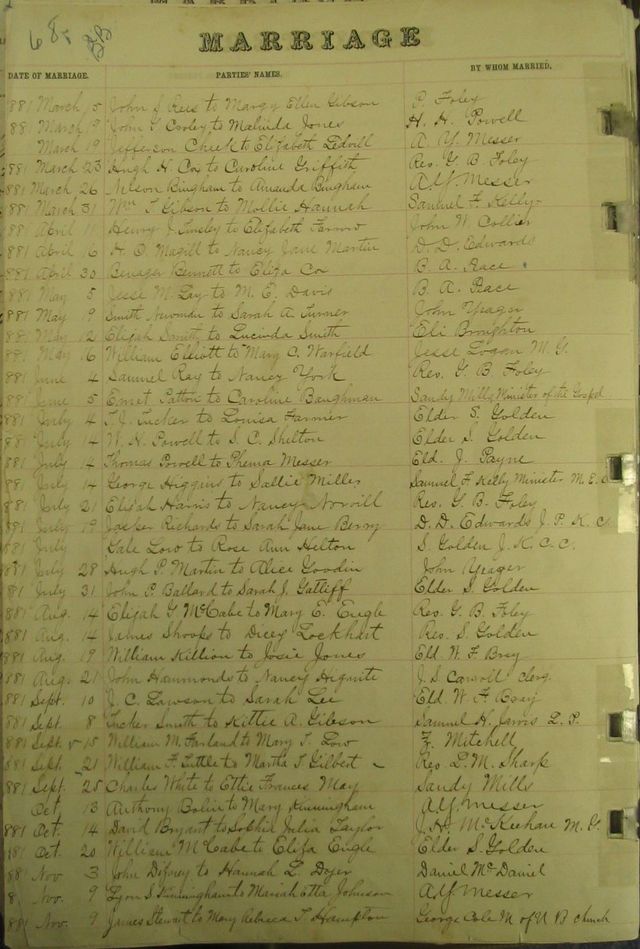 68
MARRIAGE
DATE OF MARRIAGE. PARTIES' NAMES. BY WHOM MARRIED.
881 March 5 John S Reis to Margy Ellen Gibson P. Foley
881 March 9 John G Corley to Malinda Jones H. H. Powell
March 19 Jefferson Cheek to Elizabeth Ledvill A. Y. Messer
881 March 23 Hugh H. Cox to Caroline Griffith Rev. G. B. Foley
881 March 26 Nelson Bingham to Amanda Bingham A. Y. Messer
881 March 31 Wm T Gibson to Mollie Hannah Samuel F Kelly
881 April 1 Henry J Ainsley to Elizabeth Farris John W. Collier
881 April 16 H. O. Magill to Nancy Jane Martin D. D. Edwards
881 April 30 Bennett to Eliza Cox B. A. Race
881 May 5 Jesse M. Lay to M. E. Davis B. A. Race
881 May 9 Smith Newman to Sarah A Turner John Yeager
881 May 12 Elijah Smith to Lucinda Smith Eli Broughton
881 May 16 William Elliott to Mary C. Warfield Jesse Logan M. G.
881 June 4 Samuel Ray to Nancy York Rev. G. B. Foley
881 June 5 Emet Patton to Caroline Baughman Sandy Mills Minister of the Gospel
881 July 4 T. J. Tucker to Louisa Farmer Elder S. Golden
881 July 14 W. H. Powell to S. C. Shelton Elder S. Golden
881 July 14 Thomas Powell to Phema Messer Eld. J. Payne
881 July 14 George Higgins to Sallie Miller Samuel F Kelly Minister M. E. C
881 July 21 Elijah Harris to Nancy Norvill Rev. G. B. Foley
881 July 19 Jasper Richards to Sarah Jane Berry D. D. Edwards J. P. K. C.
881 July Gale Low to Rose Ann Helton S. Golden J. K. C. C.
881 July 28 Hugh P. Martin to Alice Goodin John Yeager
881 July 31 John P Ballard to Sarah J. Gatliff Elder S. Golden
881 Aug. 14 Elijah G McCabe to Mary E. Engle Rev. G. B. Foley
881 Aug. 14 James Shoops to Dicey Lockhart Rev. S. Golden
881 Aug. 19 William Killion to Josie Jones Eld. W. F. Bray
881 Aug. 21 John Hammonds to Nancy Hignite J. S Carroll Clerg.
881 Sept. 10 J. C. Lawson to Sarah Lee Eld. W. F. Bray
881 Sept. 8 Tucker Smith to Kittie A. Gibson Samuel H. Jarvis L. P.
881 Sept. 15 William M. Farland to Mary T. Low F. Mitchell
881 Sept. 21 William F. Tuttle to Martha T Gilbert Rev. L. M. Sharp
881 Sept. 25 Charles White to Ettie Frances May Sandy Mills
Oct 13 Anthony Bolin to Mary Kunningham A. Y. Messer
881 Oct. 14 David Bryant to Sophia Julia Taylor J. H. McKeehan M. G.
881 Oct 20 William McCabe to Eliza Engle Elder S. Golden
881 Nov 3 John Disney to Hannah L. Dozer Daniel McDaniel
8 Nov. 9 Lyon S Kunningham to Mariah Etta Johnson A. Y. Messer
881 Nov. 9 James Stewart to Mary Rebecca T. Hampton George Cole M of U B Church